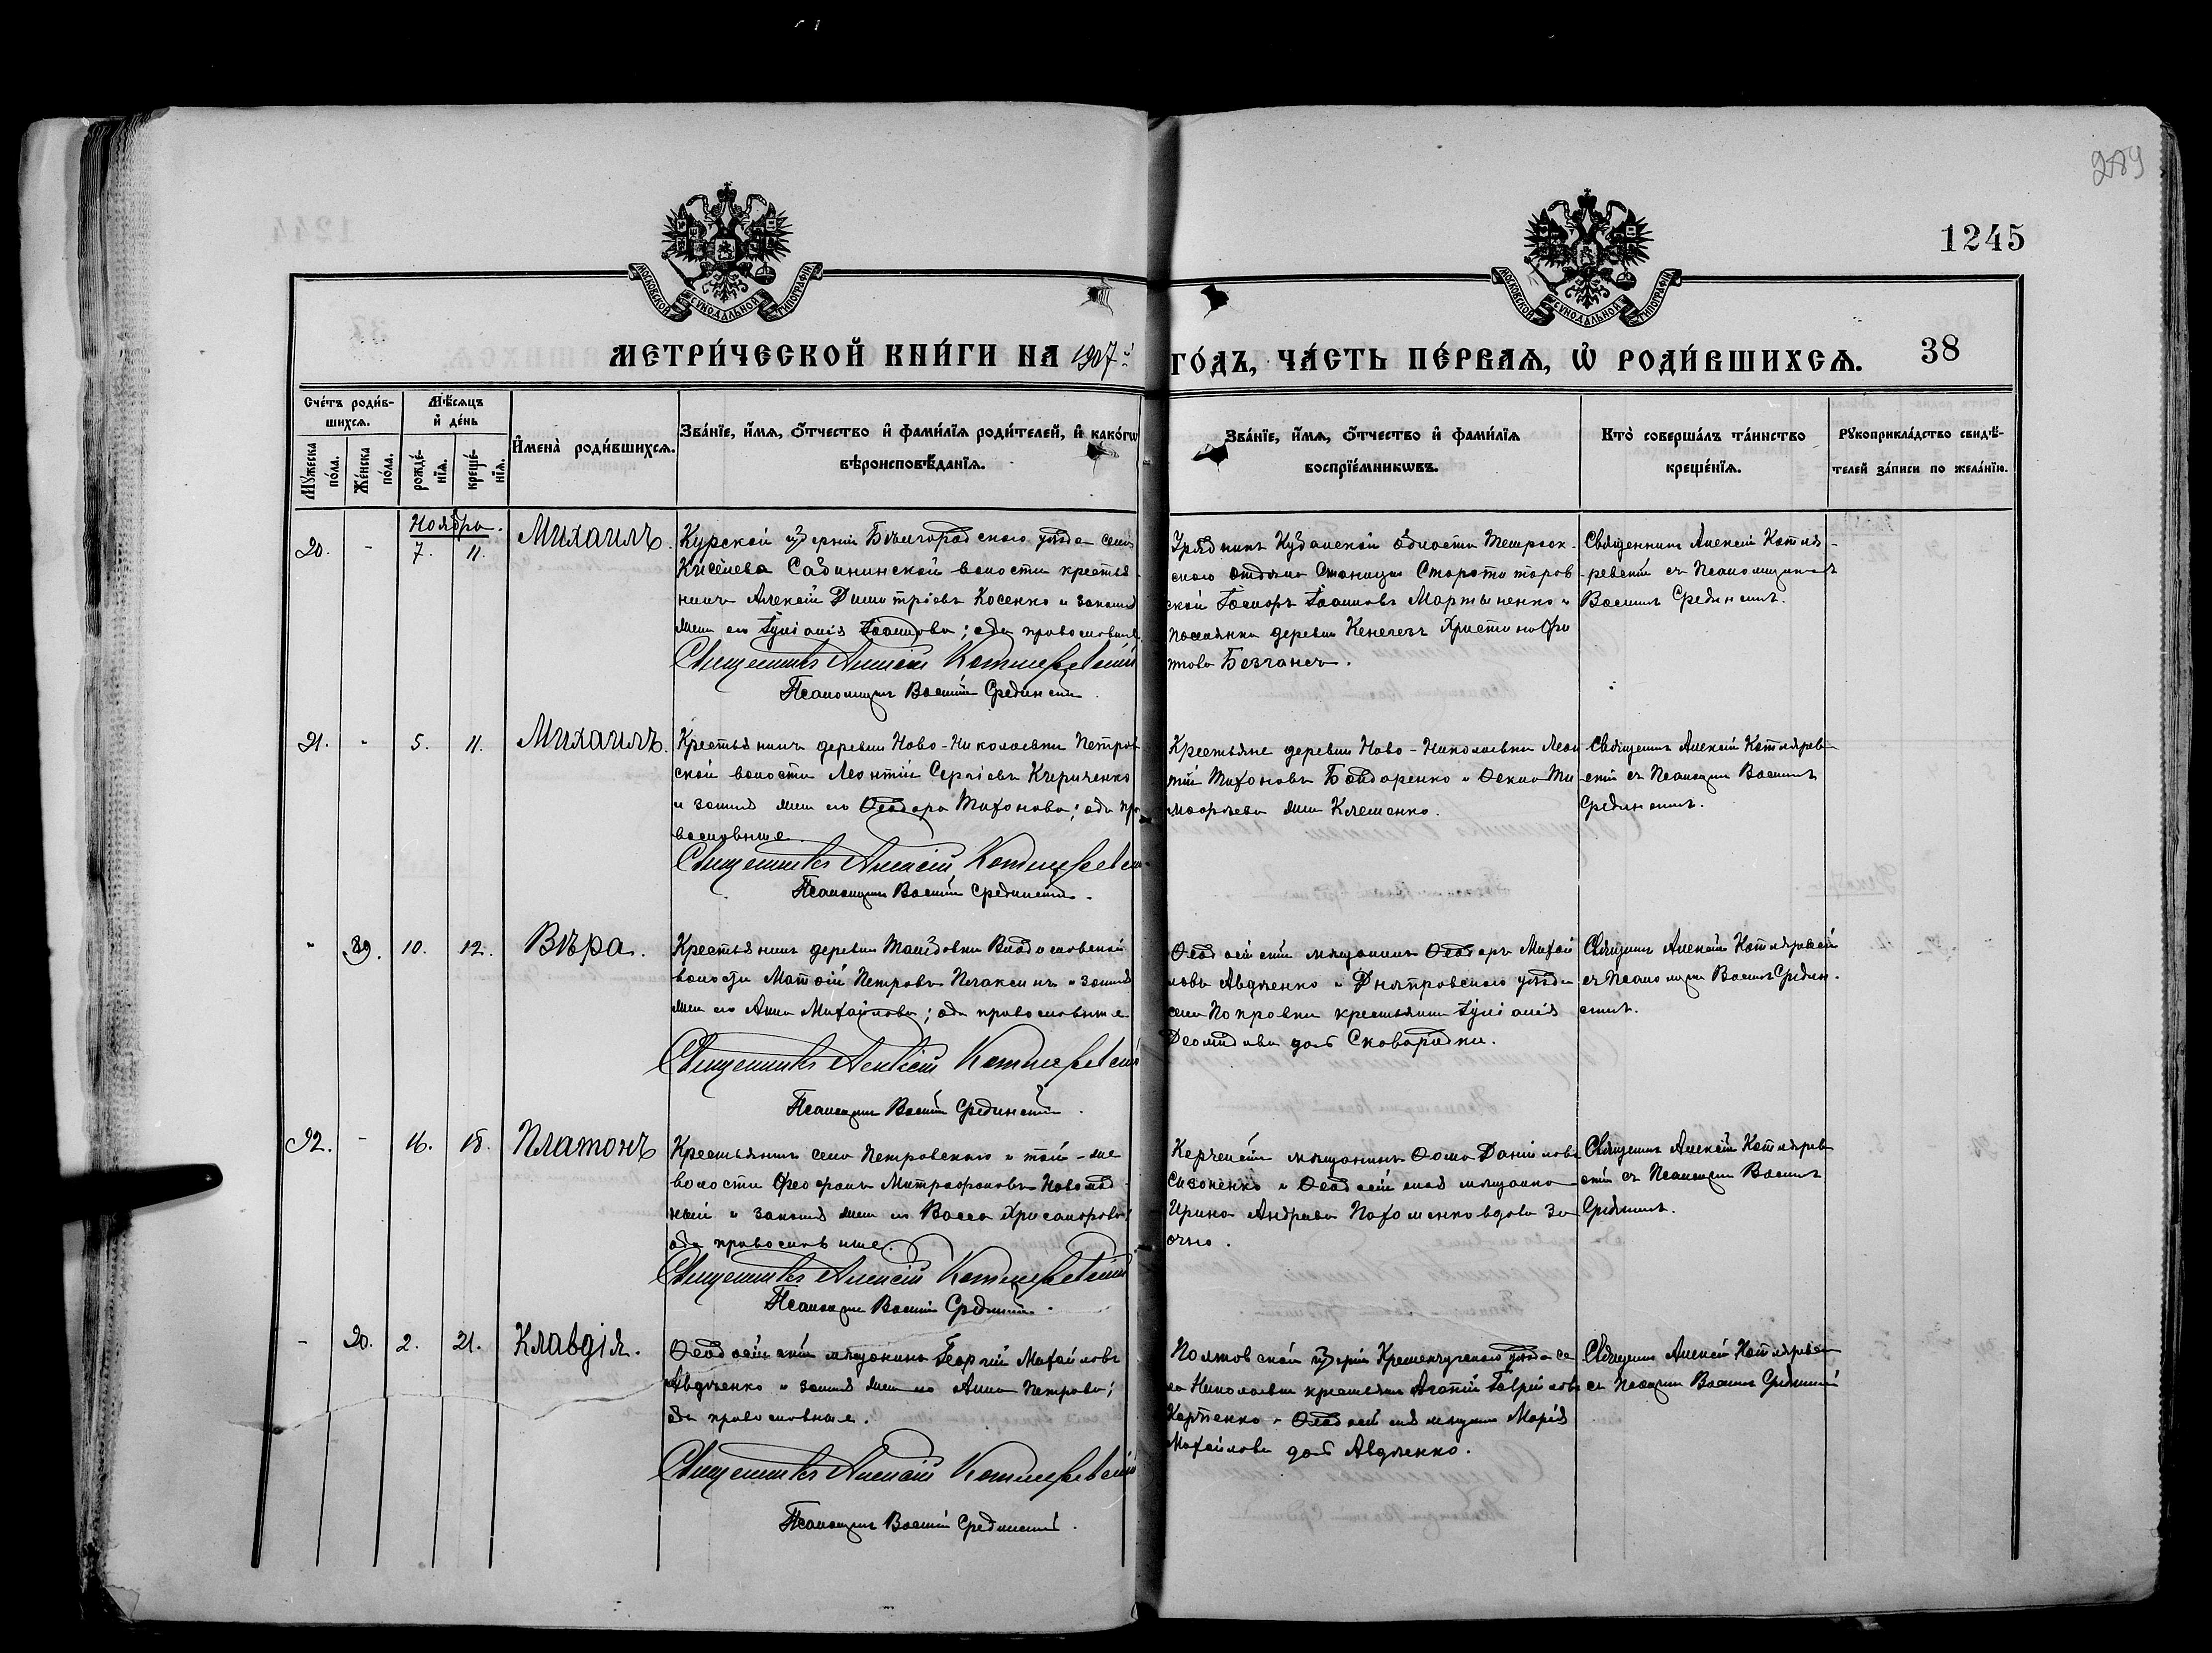 289
1245
МОСКОВСКОЙ СУНОДАЛЬНОЙ ТИПОГРАФІИ
МОСКОВСКОЙ СУНОДАЛЬНОЙ ТИПОГРАФІИ
МЕТРИ́ЧЕСКОЙ КНИ́ГИ НА 1907й ГО́ДЪ, ЧА́СТЬ ПЕ́РВАѦ, Ѡ҆ РОДИ́ВШИХСѦ. 38
Сче́тъ роди́в-
шихсѧ.
Мѣ́сѧцъ
и҆ де́нь
Мꙋ́жеска
по́ла.
Же́нска
по́ла.
рожде́-
нїѧ.
креще́-
нїѧ.
И҆мена̀ роди́вшихсѧ.
Зва́нїе, и҆́мѧ, ѻ҆́тчество и҆ фами́лїѧ роди́телей, и҆ како́гѡ
вѣроисповѣ́данїѧ.
Зва́нїе, и҆́мѧ, ѻ҆́тчество и҆ фами́лїѧ
воспрїе́мникѡвъ.
Кто̀ соверша́лъ та́инство
креще́нїѧ.
Рꙋкоприкла́дство свидѣ́-
телей за́писи по жела́нїю.
Ноября.
20. - 7. 11. Михаилъ.
Курской губерніи Бѣлгородскаго уѣзда села
Киселева Сабининской волости крестья-
нинъ Алексій Димитріевъ Косенко и законная
жена его Іуліанія Іоаннова; оба православные
Священникъ Алексій Котляревскій
Псаломщикъ Василій Срединскій.
Урядникъ Кубанской области Темрюк-
скаго отдѣла Станицы Старотиторов-
ской Іоаннов Мартыненко и
поселянка деревни Кенегезъ Христина
Безгансъ.
Священникъ Алексій Котля-
ревскій съ Псаломщикомъ
Василіемъ Срединскимъ.
21. " 5. 11. Михаилъ.
Крестьянинъ деревни Ново-Николаевки Петров
ской волости Леонтій Сергіевъ Кириченко
и законная жена его Ѳеодора Тихонова; оба пра
вославные
Священникъ Алексій Котляревскій
Псаломщикъ Василій Срединскій.
Крестьяне деревни Ново-Николаевки Леон
тій Тихоновъ Бондаренко и Ѳекла Ти
моѳеева жена Клеменко.
Священникъ Алексій Котлярев
скій съ Псаломщикомъ Василіемъ
Срединскимъ.
" 19. 10. 12. Вѣра.
Крестьянинъ деревни Владиславской
волости Матѳій Петровъ Плаксинъ и законная
жена его Анна Михайлова; оба православные
Священникъ Алексій Котляревскій
Псаломщикъ Василій Срединскій.
Ѳеодосійскій мѣщанинъ Ѳеодоръ Михай
ловъ Авдѣенко и Днѣпровскаго уѣзда
села Покровки крестьянка Іуліанія
Деомидова дочь Сковородки.
Священникъ Алексій Котляревскій
съ Псаломщикомъ Василіемъ Средин-
скимъ.
22. - 16. 18. Платонъ
Крестьянинъ села Петровскаго и той-же
волости Ѳеофанъ Митрофановъ
и законная жена его Васса Хрисанфова;
оба православные.
Священникъ Алексій Котляревскій
Псаломщикъ Василій Срединскій.
Керченскій мѣщанинъ Ѳома Даніиловъ
Сизоненко и Ѳеодосійская мѣщанка
Ирина Андреева Пахоменко вдова За
очно.
Священникъ Алексій Котлярев
скій съ Псаломщикомъ Василіемъ
Срединскимъ.
- 20. 2. 21. Клавдія.
Ѳеодосійскій мѣщанинъ Георгій Михайловъ
Авдѣенко и законная жена его Анна Петрова;
оба православные.
Священникъ Алексій Котляревскій
Псаломщикъ Василій Срединскій.
Полтавской губерніи Кременчугскаго уѣзда се
ла Николаевки крестьянинъ Агапій Гавріиловъ
Карпенко и Ѳеодосійская мѣщанка Марія
Михайлова дочь Авдѣенко.
Священникъ Алексій Котляревскій
съ Псаломщикомъ Василіемъ Срединскимъ